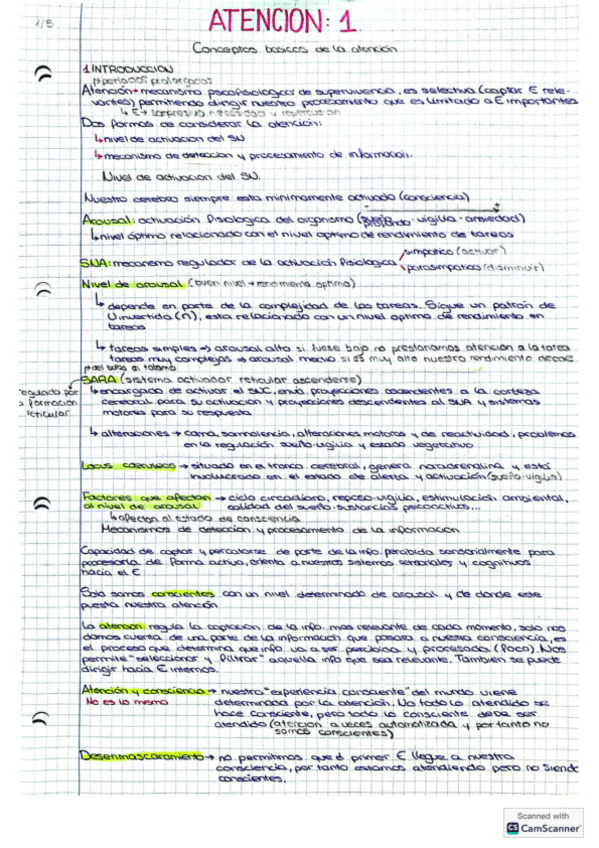 1/5
ATENCION: 1.
Conceptos basicos de la atención
1. INTRODUCCION
periodos prolongados
Atención → mecanismo psicofisiologico de supervivencia, es selectiva (captar E rele-
vantes) permitiendo dirigir nuestro procesamiento que es limitado a E importantes
Dos formas de considerar la atencion:
↳ nivel de activacion del SN
↳ mecanismo de deteccion y procesamiento de informacion.
Nivel de activacion del SN.
Nuestro cerebro siempre esta minimamente activado (consciencia)
Arousal: activación fisiologica del organismo (sueño profundo · vigilia · ansiedad)
↳ nivel óptimo relacionado con el nivel optimo de rendimiento de tareas
SNA: mecanismo regulador de la activación fisiologica
simpatico (activar)
parasimpatico (disminuir)
Nivel de arousal (buen nivel → rendimiento optimo)
↳ depende en parte de la complejidad de las tareas. Sigue un patron de
U invertida (∩), esta relacionado con un nivel optimo de rendimiento en
tareas
↳ tareas simples → arousal alto si fuese bajo no prestariamos atención a la tarea
tareas muy complejas → arousal medio si es muy alto nuestro rendimiento decae
del bulbo al talamo
SARA (sistema activador reticular ascendente)
regulado por
la formacion
reticular
↳ encargado de activar el SNC, envia proyecciones ascendentes a la corteza
cerebral para su activacion y proyecciones descendentes al SNA y sistemas
motores para su respuesta
↳ alteraciones → coma, somnolencia, alteraciones motoras y de reactividad, problemas
en la regulación sueño-vigilia y estado vegetativo
Locus coeruleus → situado en el tronco cerebral, genera noradrenalina y está
involucrado en el estado de alerta y activación (sueño-vigilia)
Factores que afectan → ciclo circadiano, reposo-vigilia, estimulacion ambiental,
al nivel de arousal calidad del sueño, sustancias psicoactivas...
↳ afectan al estado de consciencia
Mecanismos de deteccion y procesamiento de la informacion
Capacidad de captar y percatarse de parte de la info. percibida sensorialmente para
procesarla de forma activa, orienta a nuestros sistemas sensoriales y cognitivos
hacia el E
Solo somos conscientes con un nivel determinado de arousal y de donde este
puesta nuestra atención
La atencion regula la captacion de la info. mas relevante de cada momento, solo nos
damos cuenta de una parte de la información que pasara a nuestra consciencia, es
el proceso que determina que info va a ser percibida y procesada (foco). Nos
permite "seleccionar y filtrar" aquella info que sea relevante. Tambien se puede
dirigir hacia E internos.
Atención y consciencia → nuestra "experiencia consciente" del mundo viene
No es lo mismo determinada por la atencion. No todo lo atendido se
hace consciente, pero todo lo consciente debe ser
atendido (atencion a veces automatizada y por tanto no
somos conscientes)
Desenmascaramiento → no permitimos que el primer E llegue a nuestra
consciencia, por tanto estamos atendiendo pero no siendo
conscientes.
Scanned with
CS CamScanner